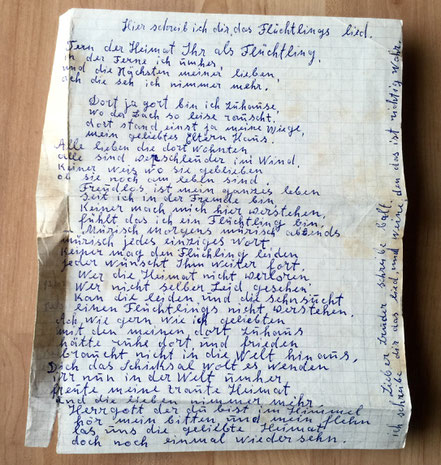 Hier schreib ich dir, das Flüchtlings lied.
Fern der Heimat Ihr als Flüchtling,
in der Ferne ich umher,
und die Nächsten meiner lieben,
ach die seh ich nimmer mehr.
Dort ja gort bin ich zuhause,
wo der Bach so leise rauscht.
dort stand einst ja meine Wiege,
mein geliebtes Eltern Haus.
Alle lieben die dort wohnten
alle sind verschleuder im Wind.
Keiner weis wo sie geblieben
ob sie noch am lebln sind.
Freudlos ist mein ganzes leben
Seit ich in der Fremde bin
Keiner mach mich hier verstehen,
fühlt das ich ein Flüchtling bin.
Mürisch morgens mürisch abends
mürisch jedes einziges Wort
Keiner mag den Flüchling leiden
jeder wünscht Ihm weiter fort.
Wer die Heimat nicht verloren
Wer nicht selber Leid gesehen.
Kan die leiden und die sehnsucht
einen Flüchtlings nicht verstehen.
Ach, wie gern wie ich geliebten
mit den meinen dort zuhaus
hätte ruhe dort und frieden
braucht nicht in die Welt hinaus,
Doch das Schiksal wolt es wenden
irr nun in der Welt umher
heute meine traute Heimat
und die lieben nimmer mehr.
Herrgott der du bist im Himmel
hör mein bitten und mein flehn
las uns die geliebte Heimat
doch noch einmal wiedersehn.
Lieber schreibe balt,
ich schreibe dir das lied und weine den das ist richtig wahr